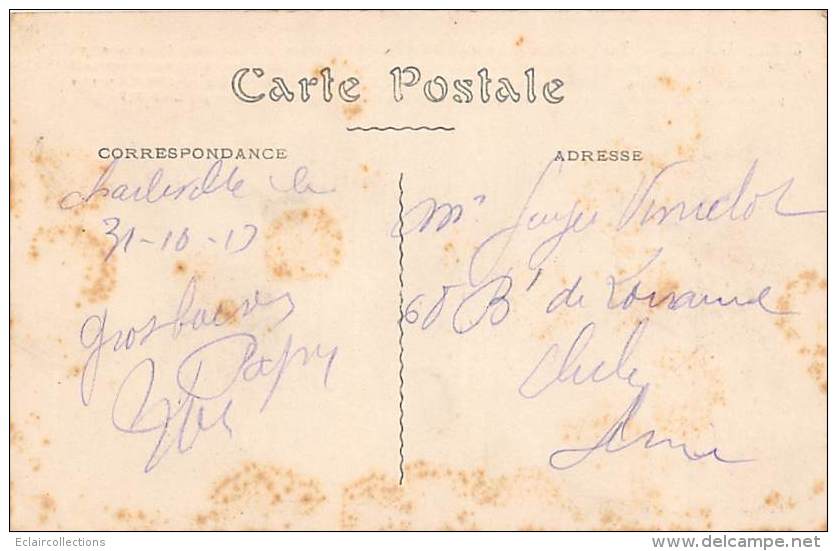 Carte Postale
CORRESPONDANCE
Charleville le
31-10-17
Gros baisers
ADRESSE
Mr Georges Vimelot
60 Bd de Lorraine
Clichy
Seine
Eclaircollections
www.delcampe.net